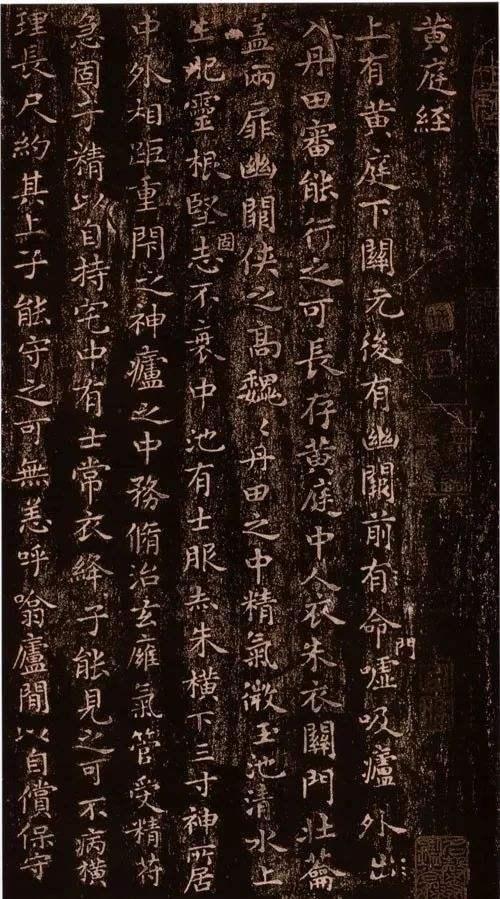 黄庭經
上有黄庭下關元後有幽闕前有命門嘘吸廬外出
入丹田審能行之可長存黄庭中人衣朱衣關門壮籥
盖兩扉幽闕侠之高巍〻丹田之中精氣微玉池清水上
生肥靈根堅固志不衰中池有士服赤朱横下三寸神所居
中外相距重閇之神廬之中務脩治玄廱氣管受精符
急固子精以自持宅中有士常衣絳子能見之可不病横
理長尺約其上子能守之可無恙呼噏廬間以自償保守